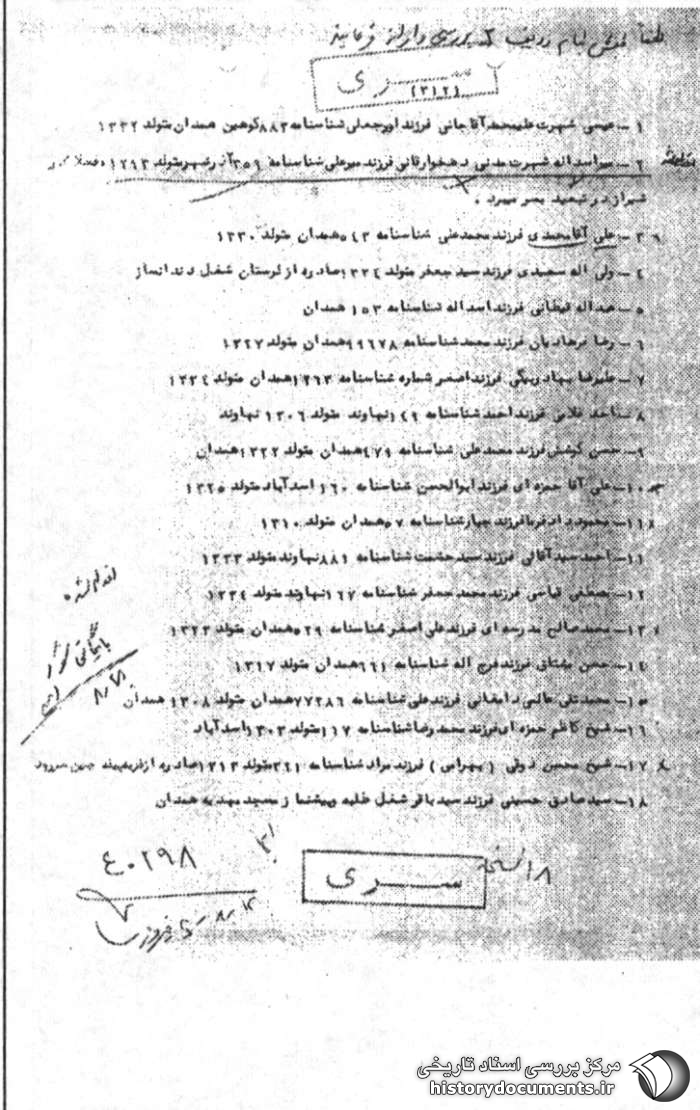 لطفاً ردیف ۲ بررسی و ارائه فرمایید
سری
(۳۱۲)
۱ - عیسی شهرت علیمحمد آقاجانی فرزند اوجعلی شناسنامه ۸۸۳ کوهین همدان متولد ۱۳۳۲
۲ - میراسداله شهرت مدنی دهخوارقانی فرزند میرعلی شناسنامه ۳۵۹ آذرشهر متولد ۱۲۹۳ که فعلا در
شیراز در تبعید بسر میبرد .
۳ - علی آقامحمدی فرزند محمدعلی شناسنامه ۵۴۳ همدان متولد ۱۳۳۰
۴ - ولی اله سعیدی فرزند سید جعفر متولد ۱۳۲۴ صادره از لرستان شغل دندانساز
۵ - عبداله فرزند اسداله شناسنامه ۱۵۳ همدان
۶ - رضا فرهادیان فرزند محمد شناسنامه ۱۹۶۷۸ همدان متولد ۱۳۲۷
۷ - علیرضا بهادربیگی فرزند اصغر شماره شناسنامه ۱۲۶۳ همدان متولد ۱۳۳۴
۸ - ساعد غلامی فرزند احمد شناسنامه ۱۴۹ نهاوند متولد ۱۳۰۶ نهاوند
۹ - حسن کوشش فرزند محمدعلی شناسنامه ۴۷۹ همدان متولد ۱۳۲۲ همدان
۱۰ - علی آقا حمزه ای فرزند ابوالحسن شناسنامه ۱۶۰ اسدآباد متولد ۱۳۲۵
۱۱ - محمود دادفرما فرزند شناسنامه ۵۷ همدان متولد ۱۳۱۰
۱۱ - احمد سیدآقائی فرزند سید حشمت شناسنامه ۸۸۱ نهاوند متولد ۱۳۳۳
۱۲ - مصطفی فرزند محمد جعفر شناسنامه ۱۶۷ نهاوند متولد ۱۳۳۴
۱۳ - محمدصالح مدرسه ای فرزند علی اصغر شناسنامه ۵۲۹ همدان متولد ۱۳۲۳
۱۴ - حسن مشتاق فرزند فرج اله شناسنامه ۹۶۱ همدان متولد ۱۳۱۷
۱۵ - محمدتقی عالمی دامغانی فرزند علی شناسنامه ۷۷۲۸۶ همدان متولد ۱۳۰۸ همدان
۱۶ - شیخ کاظم حمزه ای فرزند محمدرضا شناسنامه ۱۶۷ متولد ۱۳۰۳ اسدآباد
۱۷ - شیخ محسن ذوقی (بهرامی) فرزند مراد شناسنامه ۳۶۱ متولد ۱۳۱۳ صادره از قریه
۱۸ - سید صادق حسینی فرزند سید باقر شغل طلبه و پیشنماز مسجد مهدیه همدان
اقدام شده
بایگانی شود
۸/۲۱
۱۸ نسخه
سری
۴۰۲۹۸
مرکز بررسی اسناد تاریخی
historydocuments.ir